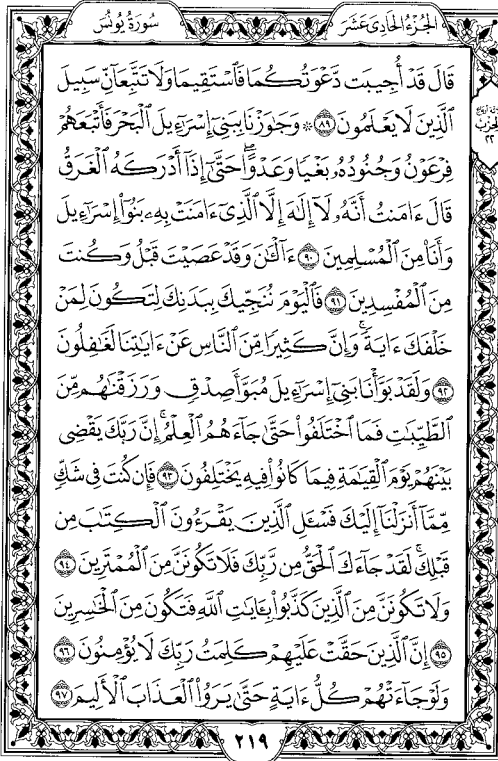 الجُزْءُ الحَادِي عَشَرَ
سُورَةُ يُونُسَ
قَالَ قَدْ أُجِيبَت دَّعْوَتُكُمَا فَٱسْتَقِيمَا وَلَا تَتَّبِعَآنِّ سَبِيلَ
ٱلَّذِينَ لَا يَعْلَمُونَ ٨٩ ۞ وَجَٰوَزْنَا بِبَنِىٓ إِسْرَٰٓءِيلَ ٱلْبَحْرَ فَأَتْبَعَهُمْ
فِرْعَوْنُ وَجُنُودُهُۥ بَغْيًا وَعَدْوًا ۖ حَتَّىٰٓ إِذَآ أَدْرَكَهُ ٱلْغَرَقُ
قَالَ ءَامَنتُ أَنَّهُۥ لَآ إِلَٰهَ إِلَّا ٱلَّذِىٓ ءَامَنَتْ بِهِۦ بَنُوٓا۟ إِسْرَٰٓءِيلَ
وَأَنَا۠ مِنَ ٱلْمُسْلِمِينَ ٩٠ ءَآلْـَٰٔنَ وَقَدْ عَصَيْتَ قَبْلُ وَكُنتَ
مِنَ ٱلْمُفْسِدِينَ ٩١ فَٱلْيَوْمَ نُنَجِّيكَ بِبَدَنِكَ لِتَكُونَ لِمَنْ
خَلْفَكَ ءَايَةً ۚ وَإِنَّ كَثِيرًا مِّنَ ٱلنَّاسِ عَنْ ءَايَٰتِنَا لَغَٰفِلُونَ
٩٢ وَلَقَدْ بَوَّأْنَا بَنِىٓ إِسْرَٰٓءِيلَ مُبَوَّأَ صِدْقٍ وَرَزَقْنَٰهُم مِّنَ
ٱلطَّيِّبَٰتِ فَمَا ٱخْتَلَفُوا۟ حَتَّىٰ جَآءَهُمُ ٱلْعِلْمُ ۚ إِنَّ رَبَّكَ يَقْضِى
بَيْنَهُمْ يَوْمَ ٱلْقِيَٰمَةِ فِيمَا كَانُوا۟ فِيهِ يَخْتَلِفُونَ ٩٣ فَإِن كُنتَ فِى شَكٍّ
مِّمَّآ أَنزَلْنَآ إِلَيْكَ فَسْـَٔلِ ٱلَّذِينَ يَقْرَءُونَ ٱلْكِتَٰبَ مِن
قَبْلِكَ ۚ لَقَدْ جَآءَكَ ٱلْحَقُّ مِن رَّبِّكَ فَلَا تَكُونَنَّ مِنَ ٱلْمُمْتَرِينَ ٩٤
وَلَا تَكُونَنَّ مِنَ ٱلَّذِينَ كَذَّبُوا۟ بِـَٔايَٰتِ ٱللَّهِ فَتَكُونَ مِنَ ٱلْخَٰسِرِينَ
٩٥ إِنَّ ٱلَّذِينَ حَقَّتْ عَلَيْهِمْ كَلِمَتُ رَبِّكَ لَا يُؤْمِنُونَ ٩٦
وَلَوْ جَآءَتْهُمْ كُلُّ ءَايَةٍ حَتَّىٰ يَرَوُا۟ ٱلْعَذَابَ ٱلْأَلِيمَ ٩٧
٢١٩